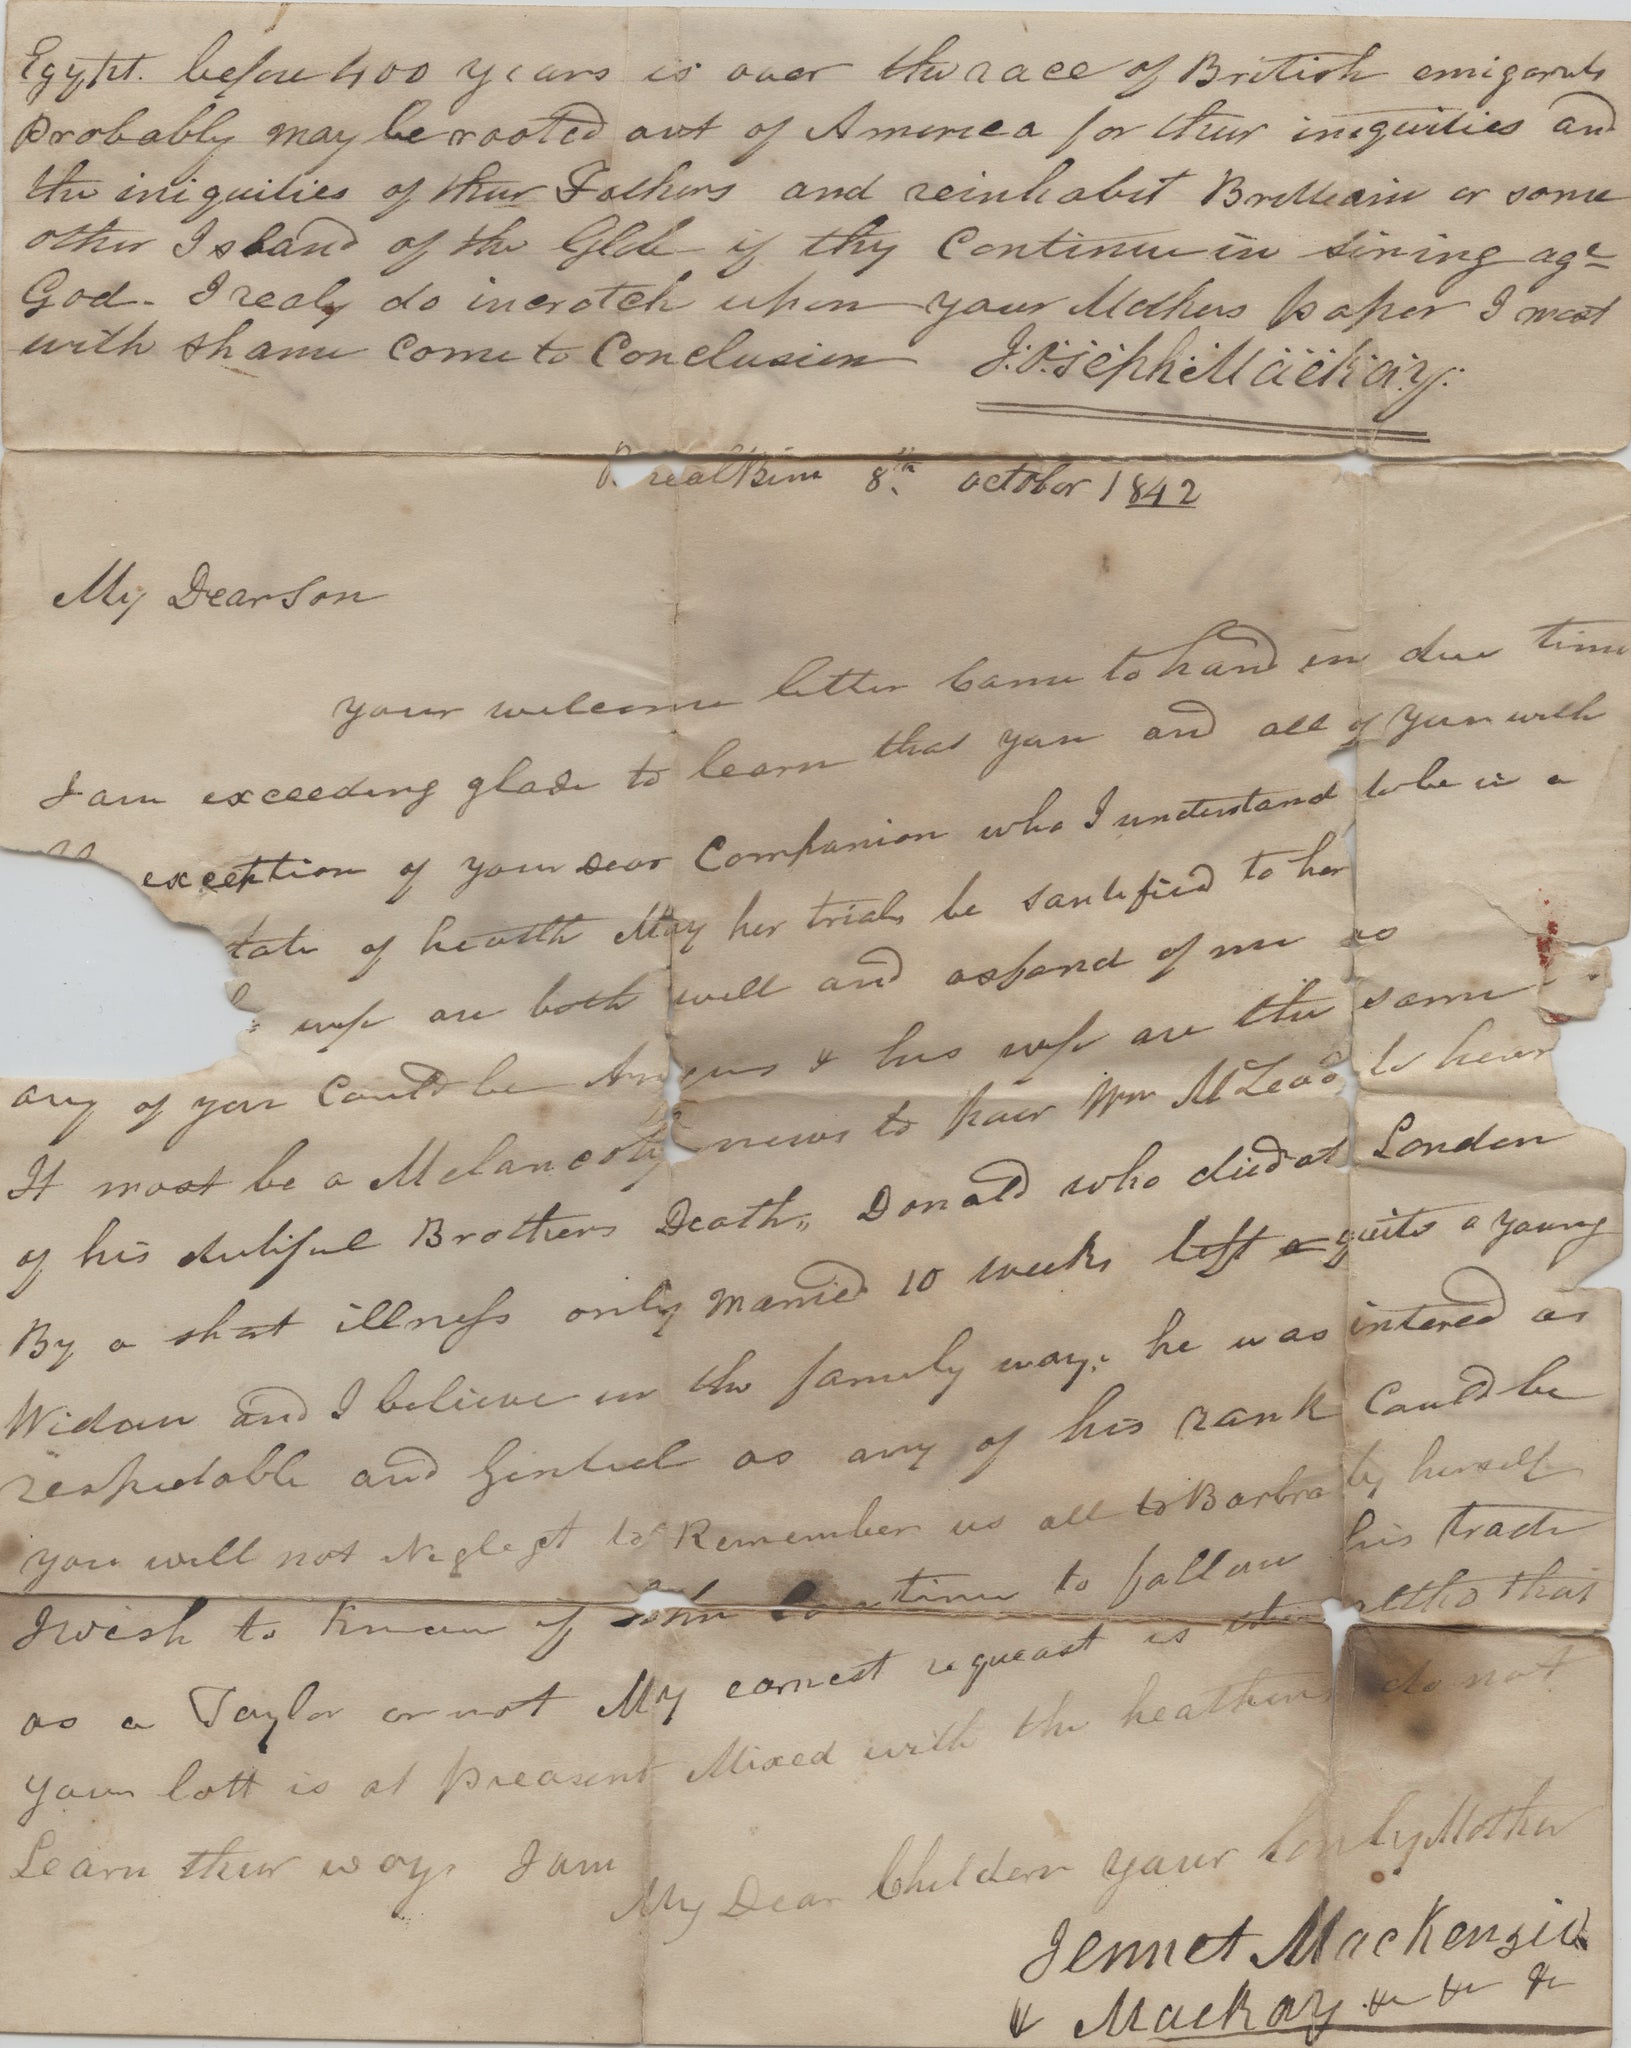 Egypt. before 400 years is over the race of British emigarnts
Probably may be rooted out of America for their iniquities and
the iniquities of their Fathers and reinhabit Britteain or some
other Island of the Glde if thy Continue in sining agt
God. I realy do incrotch upon your Mothers paper I most
with shame Come to Conclusion Joseph Mackay
8th october 1842
My Dear Son
your welcome letter Came to hand in due time
I am exceeding glade to learn that you and all of your with
exception of your Dear Companion who I understand to be in a
tate of health May her trials be santified to her
wife are both well and as fond of me as
any of you Could be Angus & his wife are the same
It most be a Melancoly news to poor Wm McLeod to hear
of his dutiful Brothers Death,, Donald who died at London
By a short illness only married 10 weeks left a quite a young
Widow and I believe in the family way. he was intered as
respectable and Genteel as any of his rank Could be
you will not Neglegt to Remember us all to Barbra by herself
I wish to know if John Continue to follow his trade
as a Taylor or not My earnest requeast is then altho that
your lott is at preasent Mixed with the heathens do not
Learn their ways I am
My Dear Childern your Mother
Jennet MacKenzie
& MacKay &c &c &c